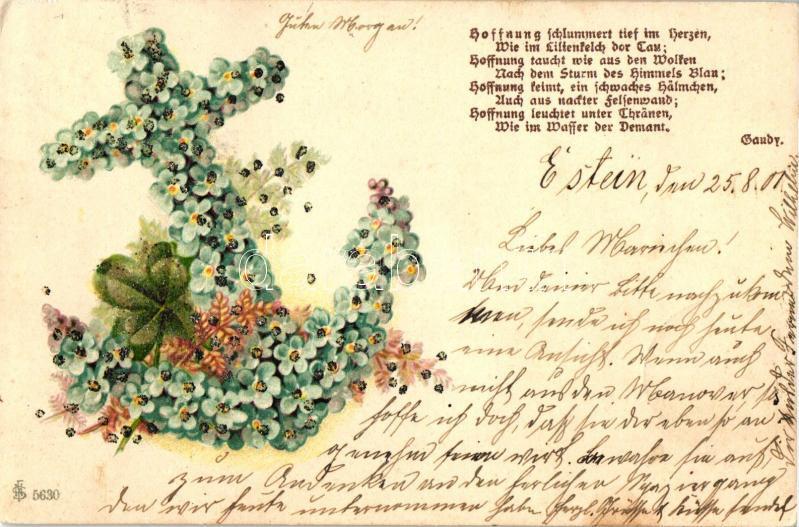 Guten Morgen!
Hoffnung schlummert tief im Herzen,
Wie im Lilienkelch der Tau;
Hoffnung taucht wie aus den Wolken
Nach dem Sturm des Himmels Blau;
Hoffnung keimt, ein schwaches Hälmchen,
Auch aus nackter Felsenwand;
Hoffnung leuchtet unter Thränen,
Wie im Wasser der Demant.
Gaudy.
Estein, den 25.8.01
Liebes Mariechen!
Um deiner Bitte nachzukom
men, sende ich noch heute
eine Ansicht. Wenn auch
nicht aus den Manover so
hoffe ich doch, daß sie dir eben so an
genehm sein wird. bewahre sie auf,
zum Andenken an den herlichen Spaziergang
den wir heute unternommen habe Herzl. Grüsse & Küsse sendet
dir dein
5630
darabanth